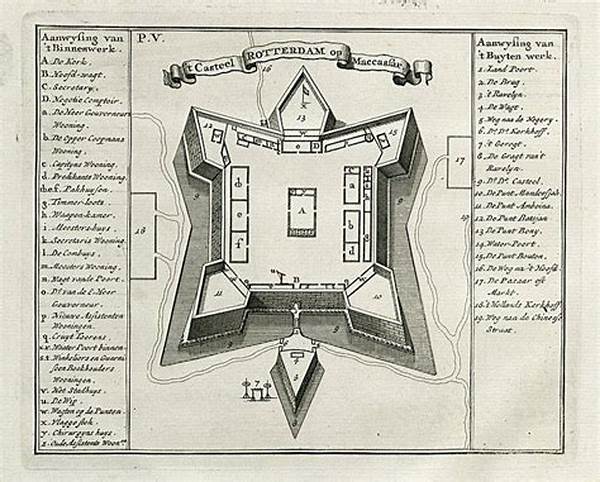 Aanwysing van
't Binnenwerk.
A. De Kerk.
B. Hoofd-wagt.
C. Secretary.
D. Negotie Comptoir.
a. De Heer Gouverneurs
Wooning.
b. De Opper Coopmans
Wooning.
c. Capityns Wooning.
d. Predikants Wooning
h.e.f. Pakhuysen.
g. Timmer-loots.
h. Waapen-kamer.
i. Meesters-huis
k. Secretaris Wooning.
l. De Comhuys.
m. Meesters Wooning.
n. Wagt van de Poort.
o. Dr. van de E. Heer
Gouverneur.
p. Nieuwe Assistenten
Wooningen.
q. Cruyt Toorens.
Water Poort binnen.
Winkeliers en Guarni
soen Boekhouders
Wooningen.
v. Het Stadhuys.
u. De Wip.
w. Wagten op de Punten.
x. Vlaggestok.
y. Chirurgyns huys
z. Oude Assistents Woon.
P.V.
't Casteel ROTTERDAM op Maccassar.
16
12
13
15
o
D
C
a
c
b
d
e
f
y
A
B
11
10
9
9
9
9
4
5
7
17
18
19
Aanwysing van
't Buyten werk.
1. Land Poort.
2. De Brug.
3. 't Ravelyn.
4. De Wagt.
5. Weg na de Negery.
6. Dr. Dr. Kerkhoff.
7. 't Geregt.
8. De Gragt van't
Ravelyn.
9. Dr. Dr. Casteel.
10. De Punt Mandersjah.
11. De Punt Amboina.
12. De Punt Batsjan
13. De Punt Bony.
14. Water-Poort.
15. De Punt Bouton.
16. De Weg na 't Hoofd.
17. De Pazaar oft
Markt.
18. 't Hollands Kerkhoff.
19. Weg naa de Chineese
Straat.